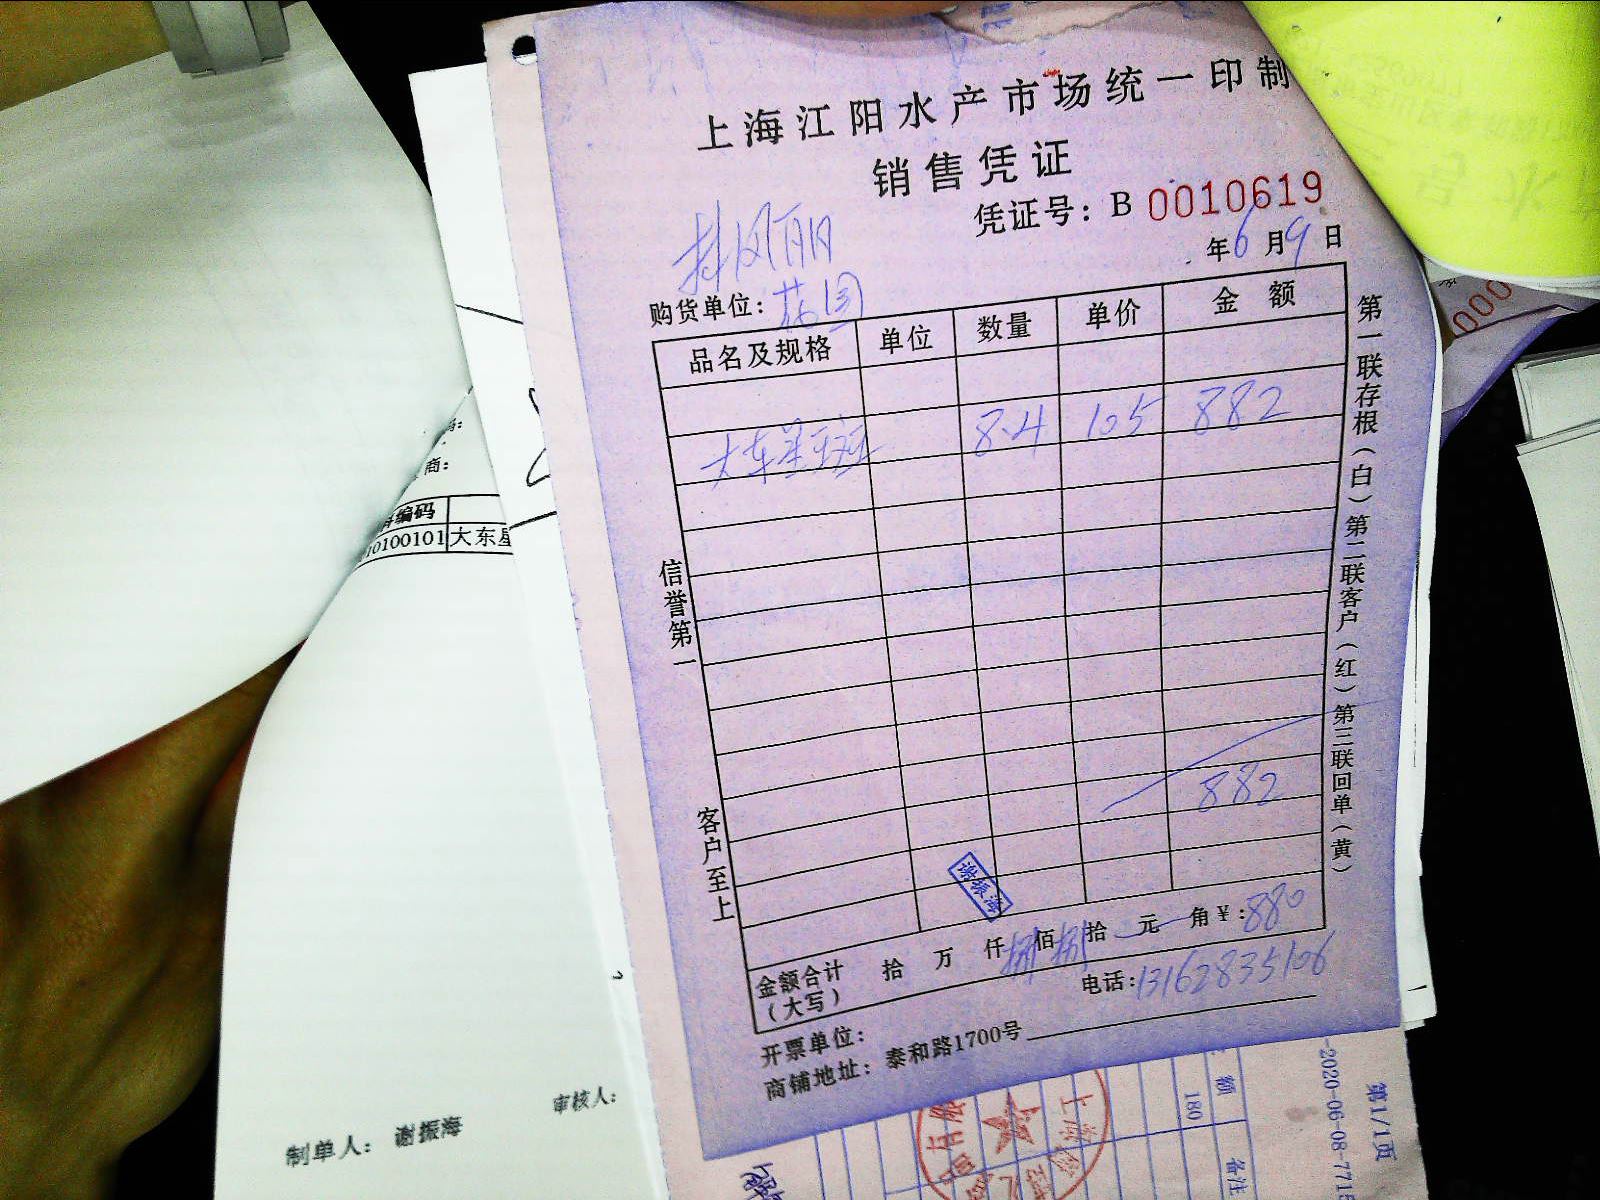 上海江阳水产市场统一印制
销售凭证
凭证号：B 0010619
年6月9日
购货单位：
品名及规格 单位 数量 单价 金额
大东星斑 8.4 105 882
882
信誉第一
客户至上
第一联存根（白）第二联客户（红）第三联回单（黄）
谢振海
金额合计（大写） 拾 万 仟 捌佰捌拾 元 角￥：880
电话：13162835106
开票单位：
商铺地址：泰和路1700号
商：
编码
10100101 大东星
制单人： 谢振海
审核人：
第1/1页
2020-06-08-771
额
180
备注
000